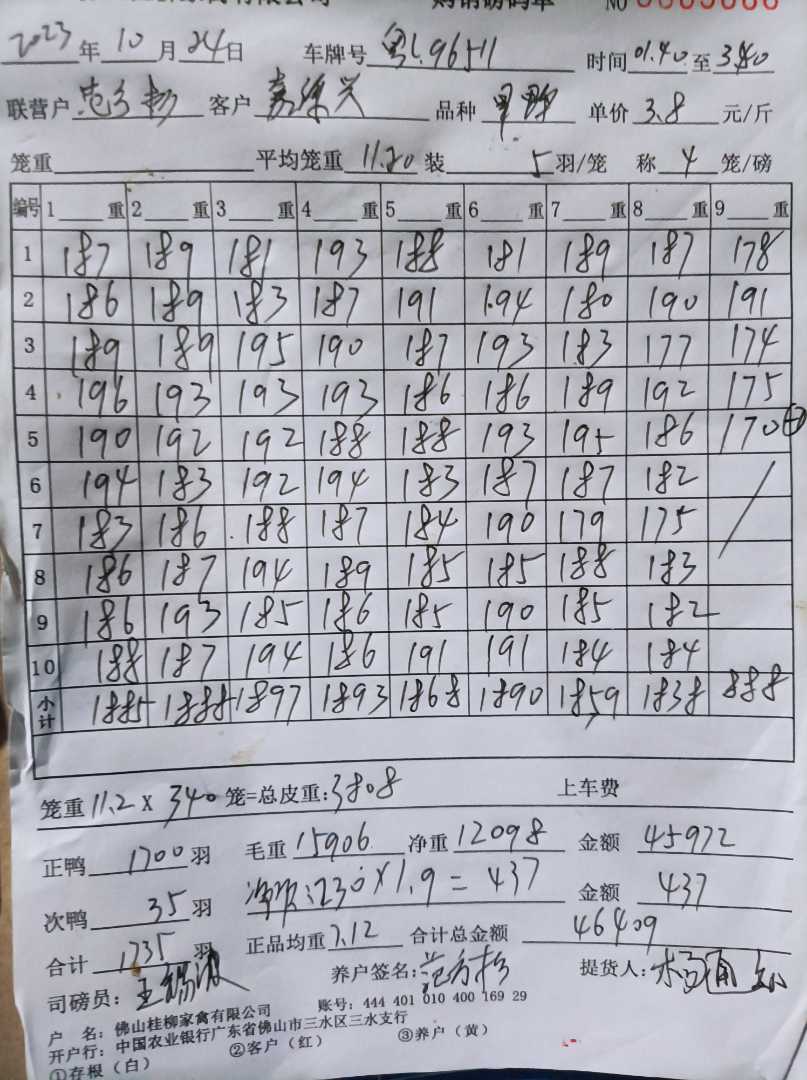 购销磅码单 NO
2023年10月24日 车牌号 粤L96511 时间01.40至3.40
联营户 范方杨 客户 品种 单价 3.8 元/斤
笼重 平均笼重 11.20 装 5羽/笼 称 4 笼/磅
编号 1 重 2 重 3 重 4 重 5 重 6 重 7 重 8 重 9 重
1 187 189 181 193 188 181 189 187 178
2 186 189 183 187 191 194 180 190 191
3 189 189 195 190 187 193 183 177 174
4 196 193 193 193 186 186 189 192 175
5 190 192 192 188 188 193 195 186 170
6 194 183 192 194 183 187 187 182
7 183 186 188 187 184 190 179 175
8 186 187 194 189 185 185 188 183
9 186 193 185 186 185 190 185 182
10 188 187 194 186 191 191 184 184
小计 1885 1888 1897 1893 1868 1890 1859 1838 888
笼重 11.2 X 340 笼=总皮重:3808 上车费
正鸭 1700 羽 毛重 15906 净重 12098 金额 45972
次鸭 35 羽 230 X 1.9 = 437 金额 437
合计 1735 羽 正品均重 7.12 合计总金额 46409
司磅员: 王锡波 养户签名: 范方杨 提货人:
户 名: 佛山桂柳家禽有限公司 账号: 444 401 010 400 169 29
开户行: 中国农业银行广东省佛山市三水区三水支行
①存根(白) ②客户(红) ③养户(黄)